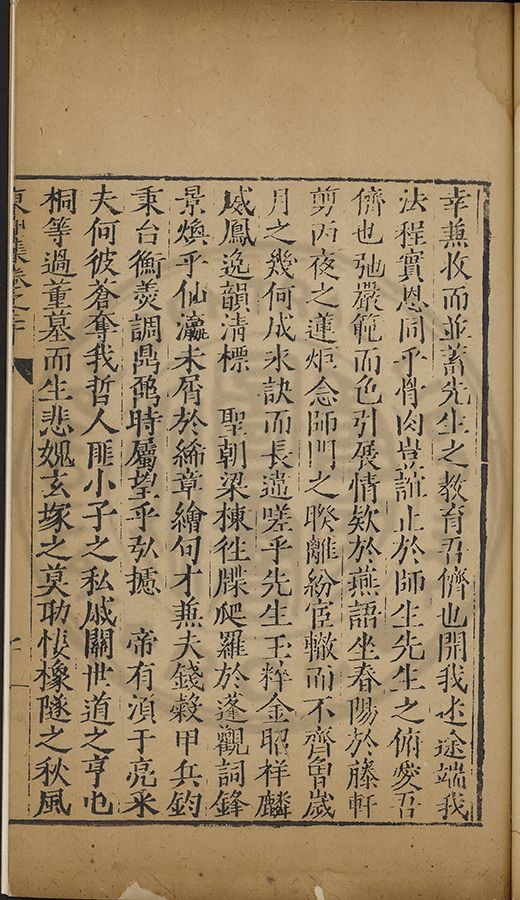 幸兼收而並蓄先生之教育吾儕也開我坐途端我
法程實恩同乎骨肉豈誼止於師生先生之俯愛吾
儕也弛嚴範而色引展情欵於燕語坐春陽於藤軒
剪丙夜之蓮炬念師門之暌離紛宦轍而不齊曾歲
月之幾何成永訣而長逝嗟乎先生玉粹金昭祥麟
威鳳逸韻清標 聖朝梁棟徃牒爬羅於蓬觀詞鋒
景煥乎仙瀛未屑於絺章繪句才兼夫錢穀甲兵鈞
秉台衡羮調鼎鼐時屬望乎弘攄 帝有須于亮采
夫何彼蒼奪我哲人匪小子之私戚關世道之亨屯
桐等過董墓而生悲媿玄塚之莫助悽橡隧之秋風
集卷之十